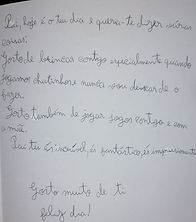 Pai, hoje é o teu dia e queria-te dizer várias
coisas:
Gosto de brincar contigo especialmente quando
jogamos chutinhos e nunca vou deixar de o
fazer.
Gosto também de jogar jogos contigo e com a
mãe.
Pai tu és incrível, és fantástico, és impressionante
Gosto muito de ti
feliz dia!